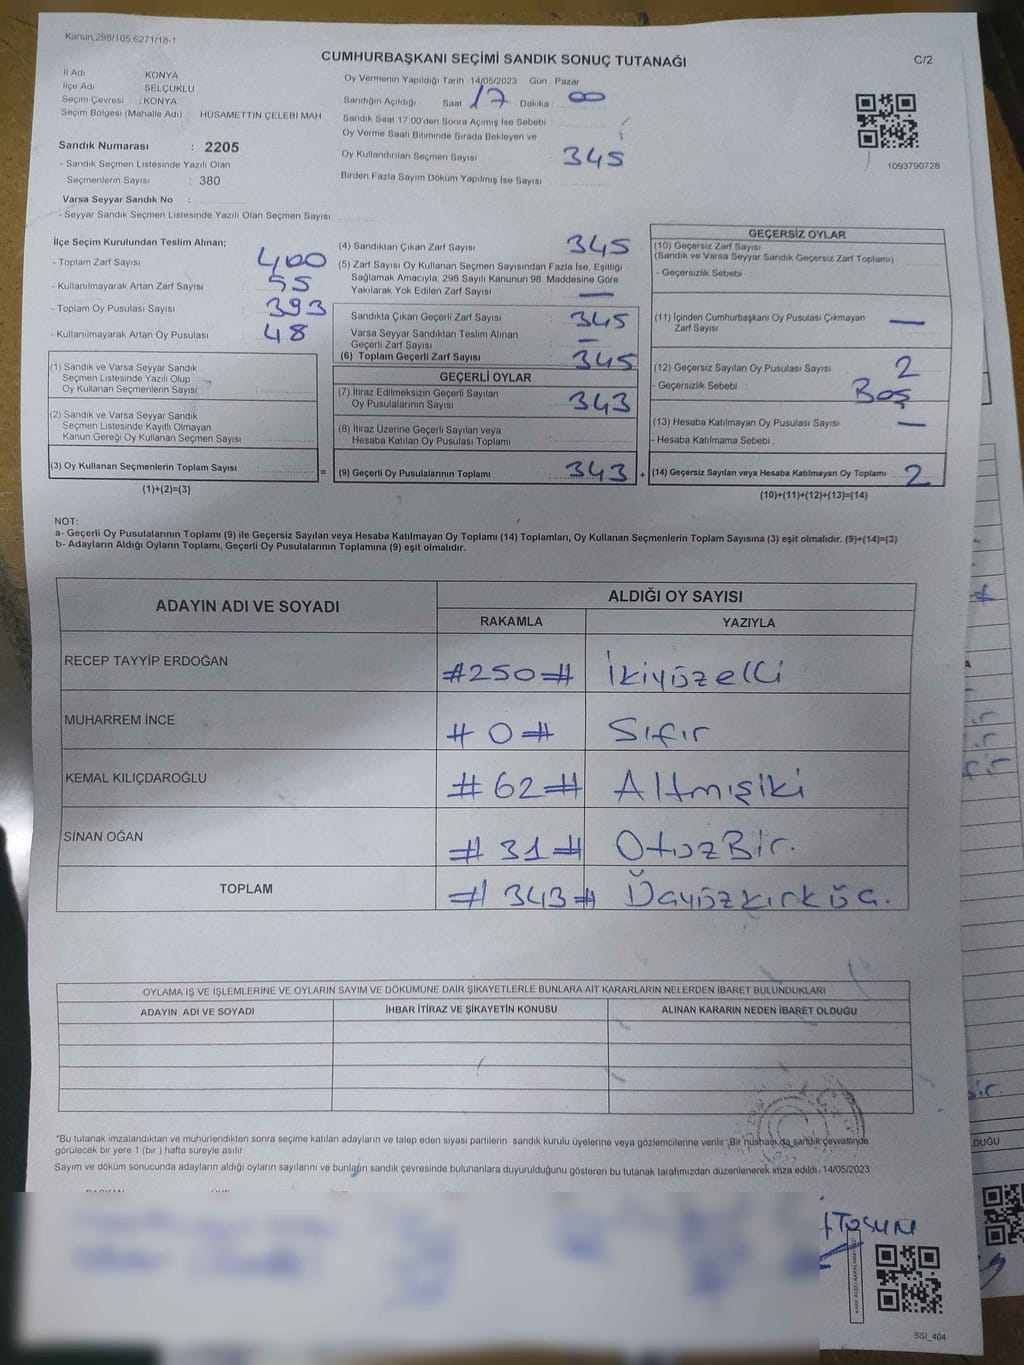 Kanun,298/105;6271/18-1
CUMHURBAŞKANI SEÇİMİ SANDIK SONUÇ TUTANAĞI
C/2
İl Adı KONYA
İlçe Adı SELÇUKLU
Seçim Çevresi :KONYA
Seçim Bölgesi (Mahalle Adı) HUSAMETTİN ÇELEBİ MAH
Sandık Numarası : 2205
- Sandık Seçmen Listesinde Yazılı Olan
Seçmenlerin Sayısı : 380
Varsa Seyyar Sandık No :
- Seyyar Sandık Seçmen Listesinde Yazılı Olan Seçmen Sayısı:
Oy Vermenin Yapıldığı Tarih 14/05/2023 Gün Pazar
Sandığın Açıldığı Saat 17 Dakika 00
Sandık Saat 17:00'den Sonra Açımış İse Sebebi
Oy Verme Saati Bitiminde Sırada Bekleyen ve
Oy Kullandırılan Seçmen Sayısı 345
Birden Fazla Sayım Döküm Yapılmış İse Sayısı
1093790728
İlçe Seçim Kurulundan Teslim Alınan;
- Toplam Zarf Sayısı 400
- Kullanılmayarak Artan Zarf Sayısı 55
- Toplam Oy Pusulası Sayısı 393
- Kullanılmayarak Artan Oy Pusulası 48
(1) Sandık ve Varsa Seyyar Sandık
Seçmen Listesinde Yazılı Olup
Oy Kullanan Seçmenlerin Sayısı
(2) Sandık ve Varsa Seyyar Sandık
Seçmen Listesinde Kayıtlı Olmayan
Kanun Gereği Oy Kullanan Seçmen Sayısı
(3) Oy Kullanan Seçmenlerin Toplam Sayısı =
(1)+(2)=(3)
(4) Sandıktan Çıkan Zarf Sayısı 345
(5) Zarf Sayısı Oy Kullanan Seçmen Sayısından Fazla İse, Eşitliği
Sağlamak Amacıyla, 298 Sayılı Kanunun 98. Maddesine Göre
Yakılarak Yok Edilen Zarf Sayısı —
Sandıkta Çıkan Geçerli Zarf Sayısı 345
Varsa Seyyar Sandıktan Teslim Alınan
Geçerli Zarf Sayısı —
(6) Toplam Geçerli Zarf Sayısı 345
GEÇERLİ OYLAR
(7) İtiraz Edilmeksizin Geçerli Sayılan
Oy Pusulalarının Sayısı 343
(8) İtiraz Üzerine Geçerli Sayılan veya
Hesaba Katılan Oy Pusulası Toplamı
(9) Geçerli Oy Pusulalarının Toplamı 343 +
GEÇERSİZ OYLAR
(10) Geçersiz Zarf Sayısı
(Sandık ve Varsa Seyyar Sandık Geçersiz Zarf Toplamı)
- Geçersizlik Sebebi
(11) İçinden Cumhurbaşkanı Oy Pusulası Çıkmayan
Zarf Sayısı —
(12) Geçersiz Sayılan Oy Pusulası Sayısı 2
- Geçersizlik Sebebi : Boş
(13) Hesaba Katılmayan Oy Pusulası Sayısı —
- Hesaba Katılmama Sebebi :
(14) Geçersiz Sayılan veya Hesaba Katılmayan Oy Toplamı 2
(10)+(11)+(12)+(13)=(14)
NOT:
a- Geçerli Oy Pusulalarının Toplamı (9) ile Geçersiz Sayılan veya Hesaba Katılmayan Oy Toplamı (14) Toplamları, Oy Kullanan Seçmenlerin Toplam Sayısına (3) eşit olmalıdır. (9)+(14)=(3)
b- Adayların Aldığı Oyların Toplamı, Geçerli Oy Pusulalarının Toplamına (9) eşit olmalıdır.
ADAYIN ADI VE SOYADI
ALDIĞI OY SAYISI
RAKAMLA YAZIYLA
RECEP TAYYİP ERDOĞAN #250# İkiyüzelli
MUHARREM İNCE # 0 # Sıfır
KEMAL KILIÇDAROĞLU # 62 # Altmışiki
SİNAN OĞAN # 31 # OtuzBir.
TOPLAM # 343 # Üçyüzkırküç.
OYLAMA İŞ VE İŞLEMLERİNE VE OYLARIN SAYIM VE DÖKÜMÜNE DAİR ŞİKAYETLERLE BUNLARA AİT KARARLARIN NELERDEN İBARET BULUNDUKLARI
ADAYIN ADI VE SOYADI İHBAR İTİRAZ VE ŞİKAYETİN KONUSU ALINAN KARARIN NEDEN İBARET OLDUĞU
*Bu tutanak imzalandıktan ve mühürlendikten sonra seçime katılan adayların ve talep eden siyasi partilerin sandık kurulu üyelerine veya gözlemcilerine verilir. Bir nüshası da sandık çevresinde
görülecek bir yere 1 (bir) hafta süreyle asılır.
Sayım ve döküm sonucunda adayların aldığı oyların sayılarını ve bunların sandık çevresinde bulunanlara duyurulduğunu gösteren bu tutanak tarafımızdan düzenlenerek imza edildi. 14/05/2023
SSI_404